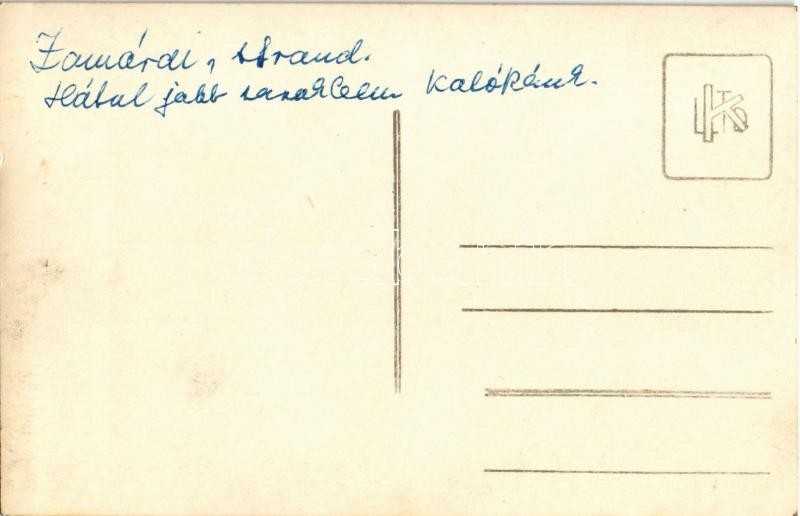 Zamárdi, strand.
Hátul jobb sarokban Kalóékünk.
darabanth